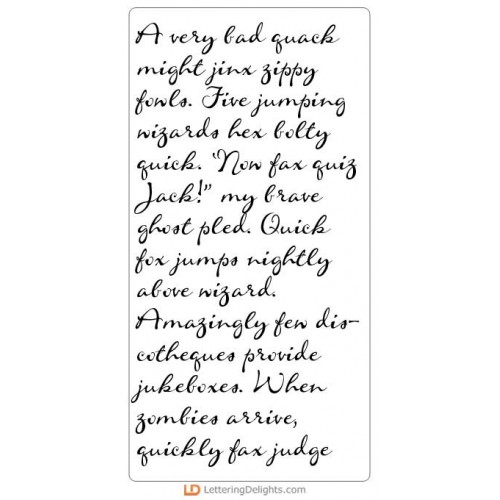 A very bad quack
might jinx zippy
fowls. Five jumping
wizards hex bolty
quick. "Now fax quiz
Jack!" my brave
ghost pled. Quick
fox jumps nightly
above wizard.
Amazingly few dis-
cotheques provide
jukeboxes. When
zombies arrive,
quickly fax judge
LD LetteringDelights.com